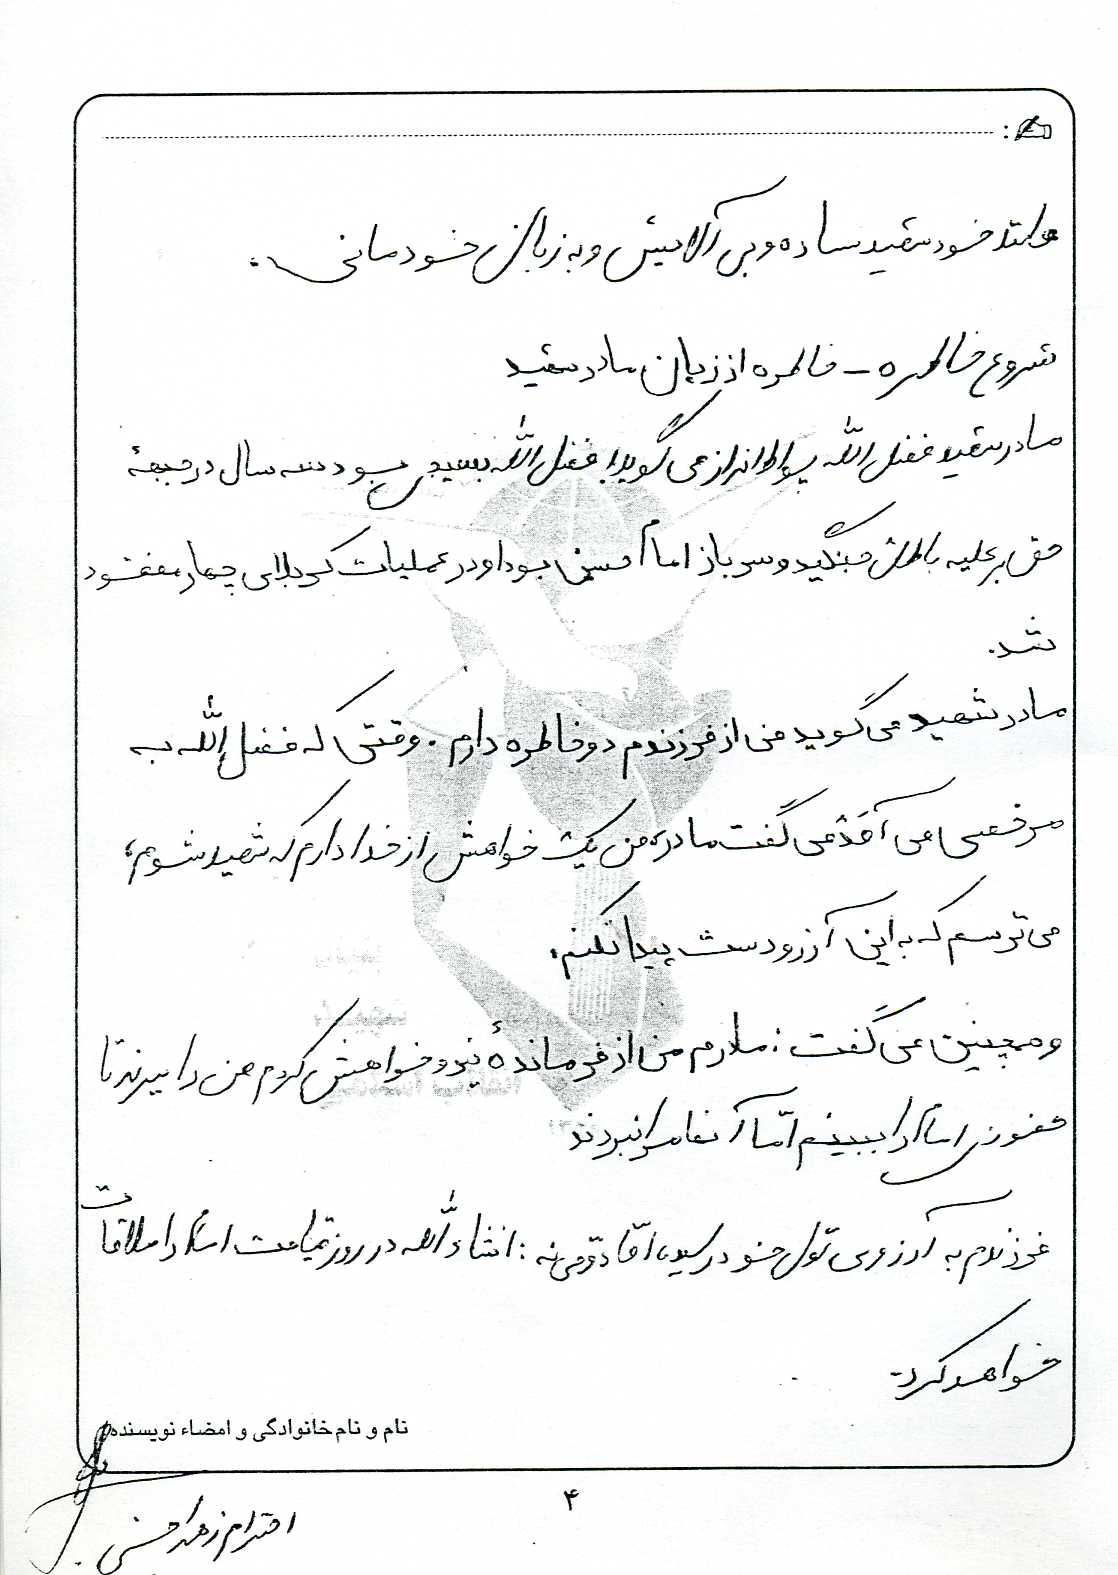 مانند خود شهید ساده و بی آلایش و به زبان خودمانی.
شروع خاطره – خاطره از زبان مادر شهید
مادر شهید فضل الله می گوید: فضل الله بسیجی بود سه سال در جبههٔ
حق بر علیه باطل جنگید و سرباز امام خمینی بود او در عملیات کربلای چهار مفقود
شد.
مادر شهید می گوید من از فرزندم دو خاطره دارم. وقتی که فضل الله به
مرخصی می آمد می گفت مادر من یک خواهش از خدا دارم که شهید شوم،
می ترسم که به این آرزو دست پیدا نکنم.
و همچنین می گفت: مادرم من از فرماندهٔ نیرو خواهش کردم من را ببرند تا
حضوری امام را ببینم امّا آنها مرا نبردند
فرزندم به آرزوی اوّل خود رسید، امّا دوّمی نه: انشاءالله در روز قیامت امام را ملاقات
خواهد کرد.
نام و نام خانوادگی و امضاء نویسنده:
۴
احترام زهرا